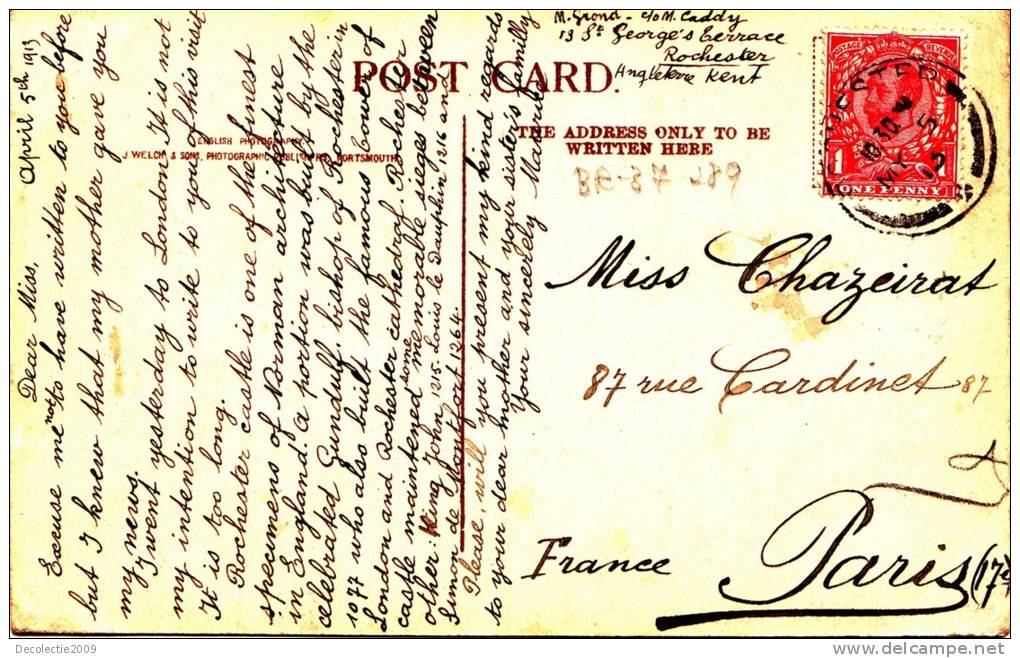 M. Grond - c/o M. Caddy
13 St George's Terrace
Rochester
Angleterre Kent
POST CARD.
ENGLISH PHOTOGRAPHY.
J. WELCH & SONS, PHOTOGRAPHIC PUBLISHERS, PORTSMOUTH.
THE ADDRESS ONLY TO BE
WRITTEN HERE
POSTAGE REVENUE
1 1
ONE PENNY
BR-37 289
Miss Chazeirat
87 rue Cardinet 87
Paris (17e)
France
April 5th 1913
Dear Miss,
Excuse me not to have written to you before
but I knew that my mother gave you
my news.
I went yesterday to London. It is not
my intention to write to you of this visit
It is too long.
Rochester castle is one of the finest
specimens of Norman architecture
in England. A portion was built by the
celebrated Gundulf, bishop of Rochester in
1077 who also built the famous tower of
London and Rochester cathedral. Rochester
castle maintened some memorable sieges between
other: King John 1215. Louis le dauphin 1216 and
Simon de Montfort 1264.
Please, will you present my kind regards
to your dear mother and your sister's family
Your sincerely
Decolectie2009
delcampe.net